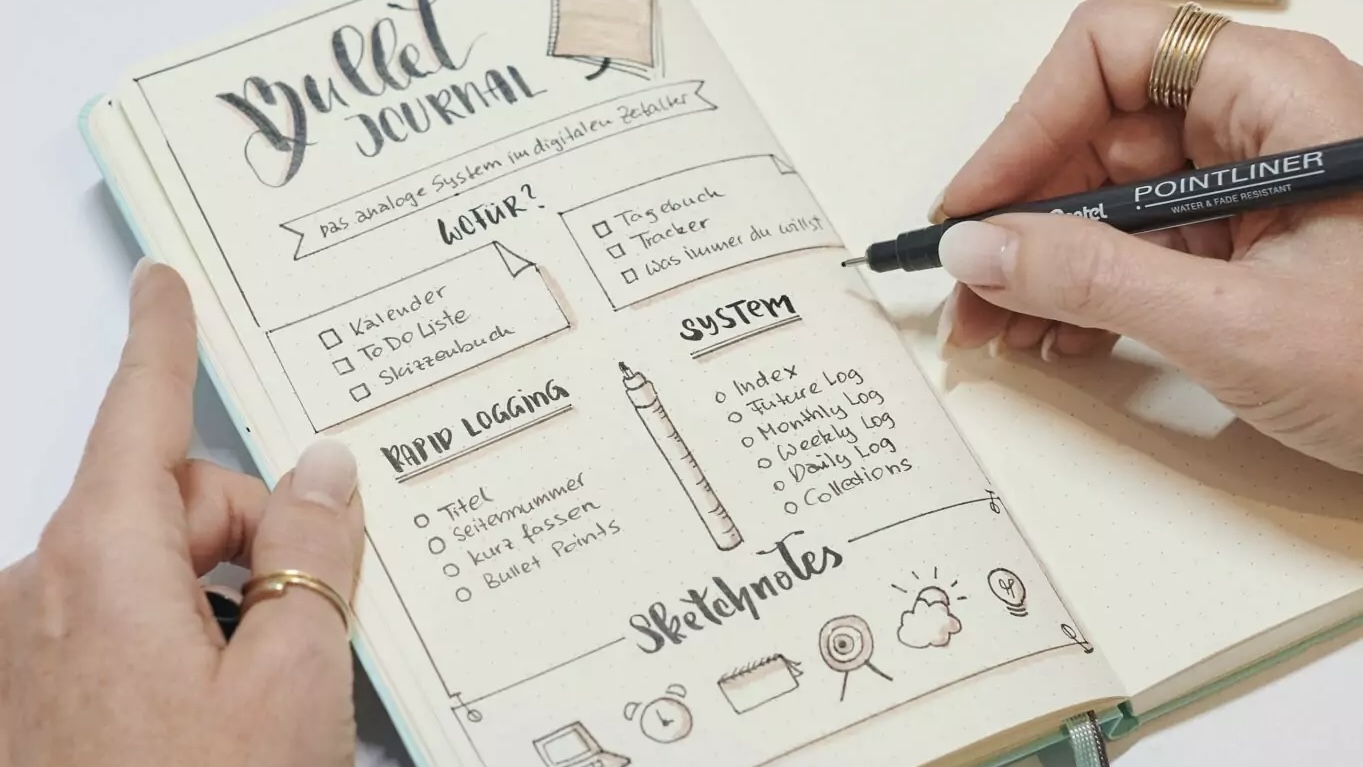 Bullet
JOURNAL
Das analoge System im digitalen Zeitalter
WOFÜR?
Kalender
ToDo Liste
Skizzenbuch
Tagebuch
Tracker
Was immer du willst
RAPID LOGGING
Titel
Seitennummer
kurz fassen
Bullet Points
SYSTEM
Index
Future Log
Monthly Log
Weekly Log
Daily Log
Collections
Sketchnotes
Pentel
POINTLINER
WATER & FADE RESISTANT